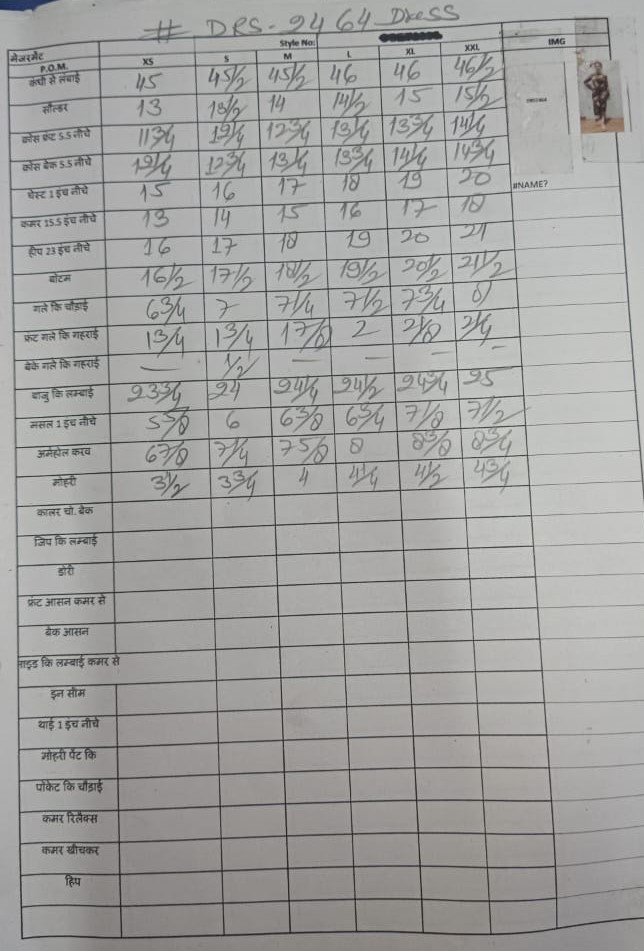 # DRS-2464 Dress
मेजरमेंट Style No: IMG
P.O.M. XS S M L XL XXL
कंधे से लंबाई 45 45 1/2 45 1/2 46 46 46 1/2
सोल्डर 13 13 1/2 14 14 1/2 15 15 1/2
क्रोस फ्रंट 5.5 नीचे 11 3/4 12 1/4 12 3/4 13 1/4 13 3/4 14 1/4
क्रोस बेक 5.5 नीचे 12 1/4 12 3/4 13 1/4 13 3/4 14 1/4 14 3/4
चेस्ट 1 इंच नीचे 15 16 17 18 19 20 #NAME?
कमर 15.5 इंच नीचे 13 14 15 16 17 18
हीप 23 इंच नीचे 16 17 18 19 20 21
बोटम 16 1/2 17 1/2 18 1/2 19 1/2 20 1/2 21 1/2
गले कि चौड़ाई 6 3/4 7 7 1/4 7 1/2 7 3/4 8
फ्रंट गले कि गहराई 1 3/4 1 3/4 1 7/8 2 2 1/8 2 1/4
बेके गले कि गहराई — 1/2 — — — —
बाजु कि लम्बाई 23 3/4 24 24 1/4 24 1/2 24 3/4 25
मसल 1 इंच नीचे 5 5/8 6 6 3/8 6 3/4 7 1/8 7 1/2
अर्महोल करव 6 7/8 7 1/4 7 5/8 8 8 3/8 8 3/4
मोहरी 3 1/2 3 3/4 4 4 1/4 4 1/2 4 3/4
कालर चो. बेक
जिप कि लम्बाई
डोरी
फ्रंट आसन कमर से
बेक आसन
साइड कि लम्बाई कमर से
इन सीम
थाई 1 इंच नीचे
मोहरी पेंट कि
पोकेट कि चौड़ाई
कमर रिलैक्स
कमर खीचकर
हिप